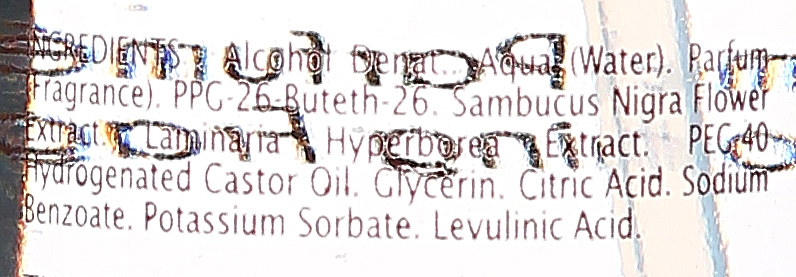 INGREDIENTS: Alcohol Denat.. Aqua (Water). Parfum
(Fragrance). PPG-26-Buteth-26. Sambucus Nigra Flower
Extract. Laminaria Hyperborea Extract. PEG-40
Hydrogenated Castor Oil. Glycerin. Citric Acid. Sodium
Benzoate. Potassium Sorbate. Levulinic Acid.